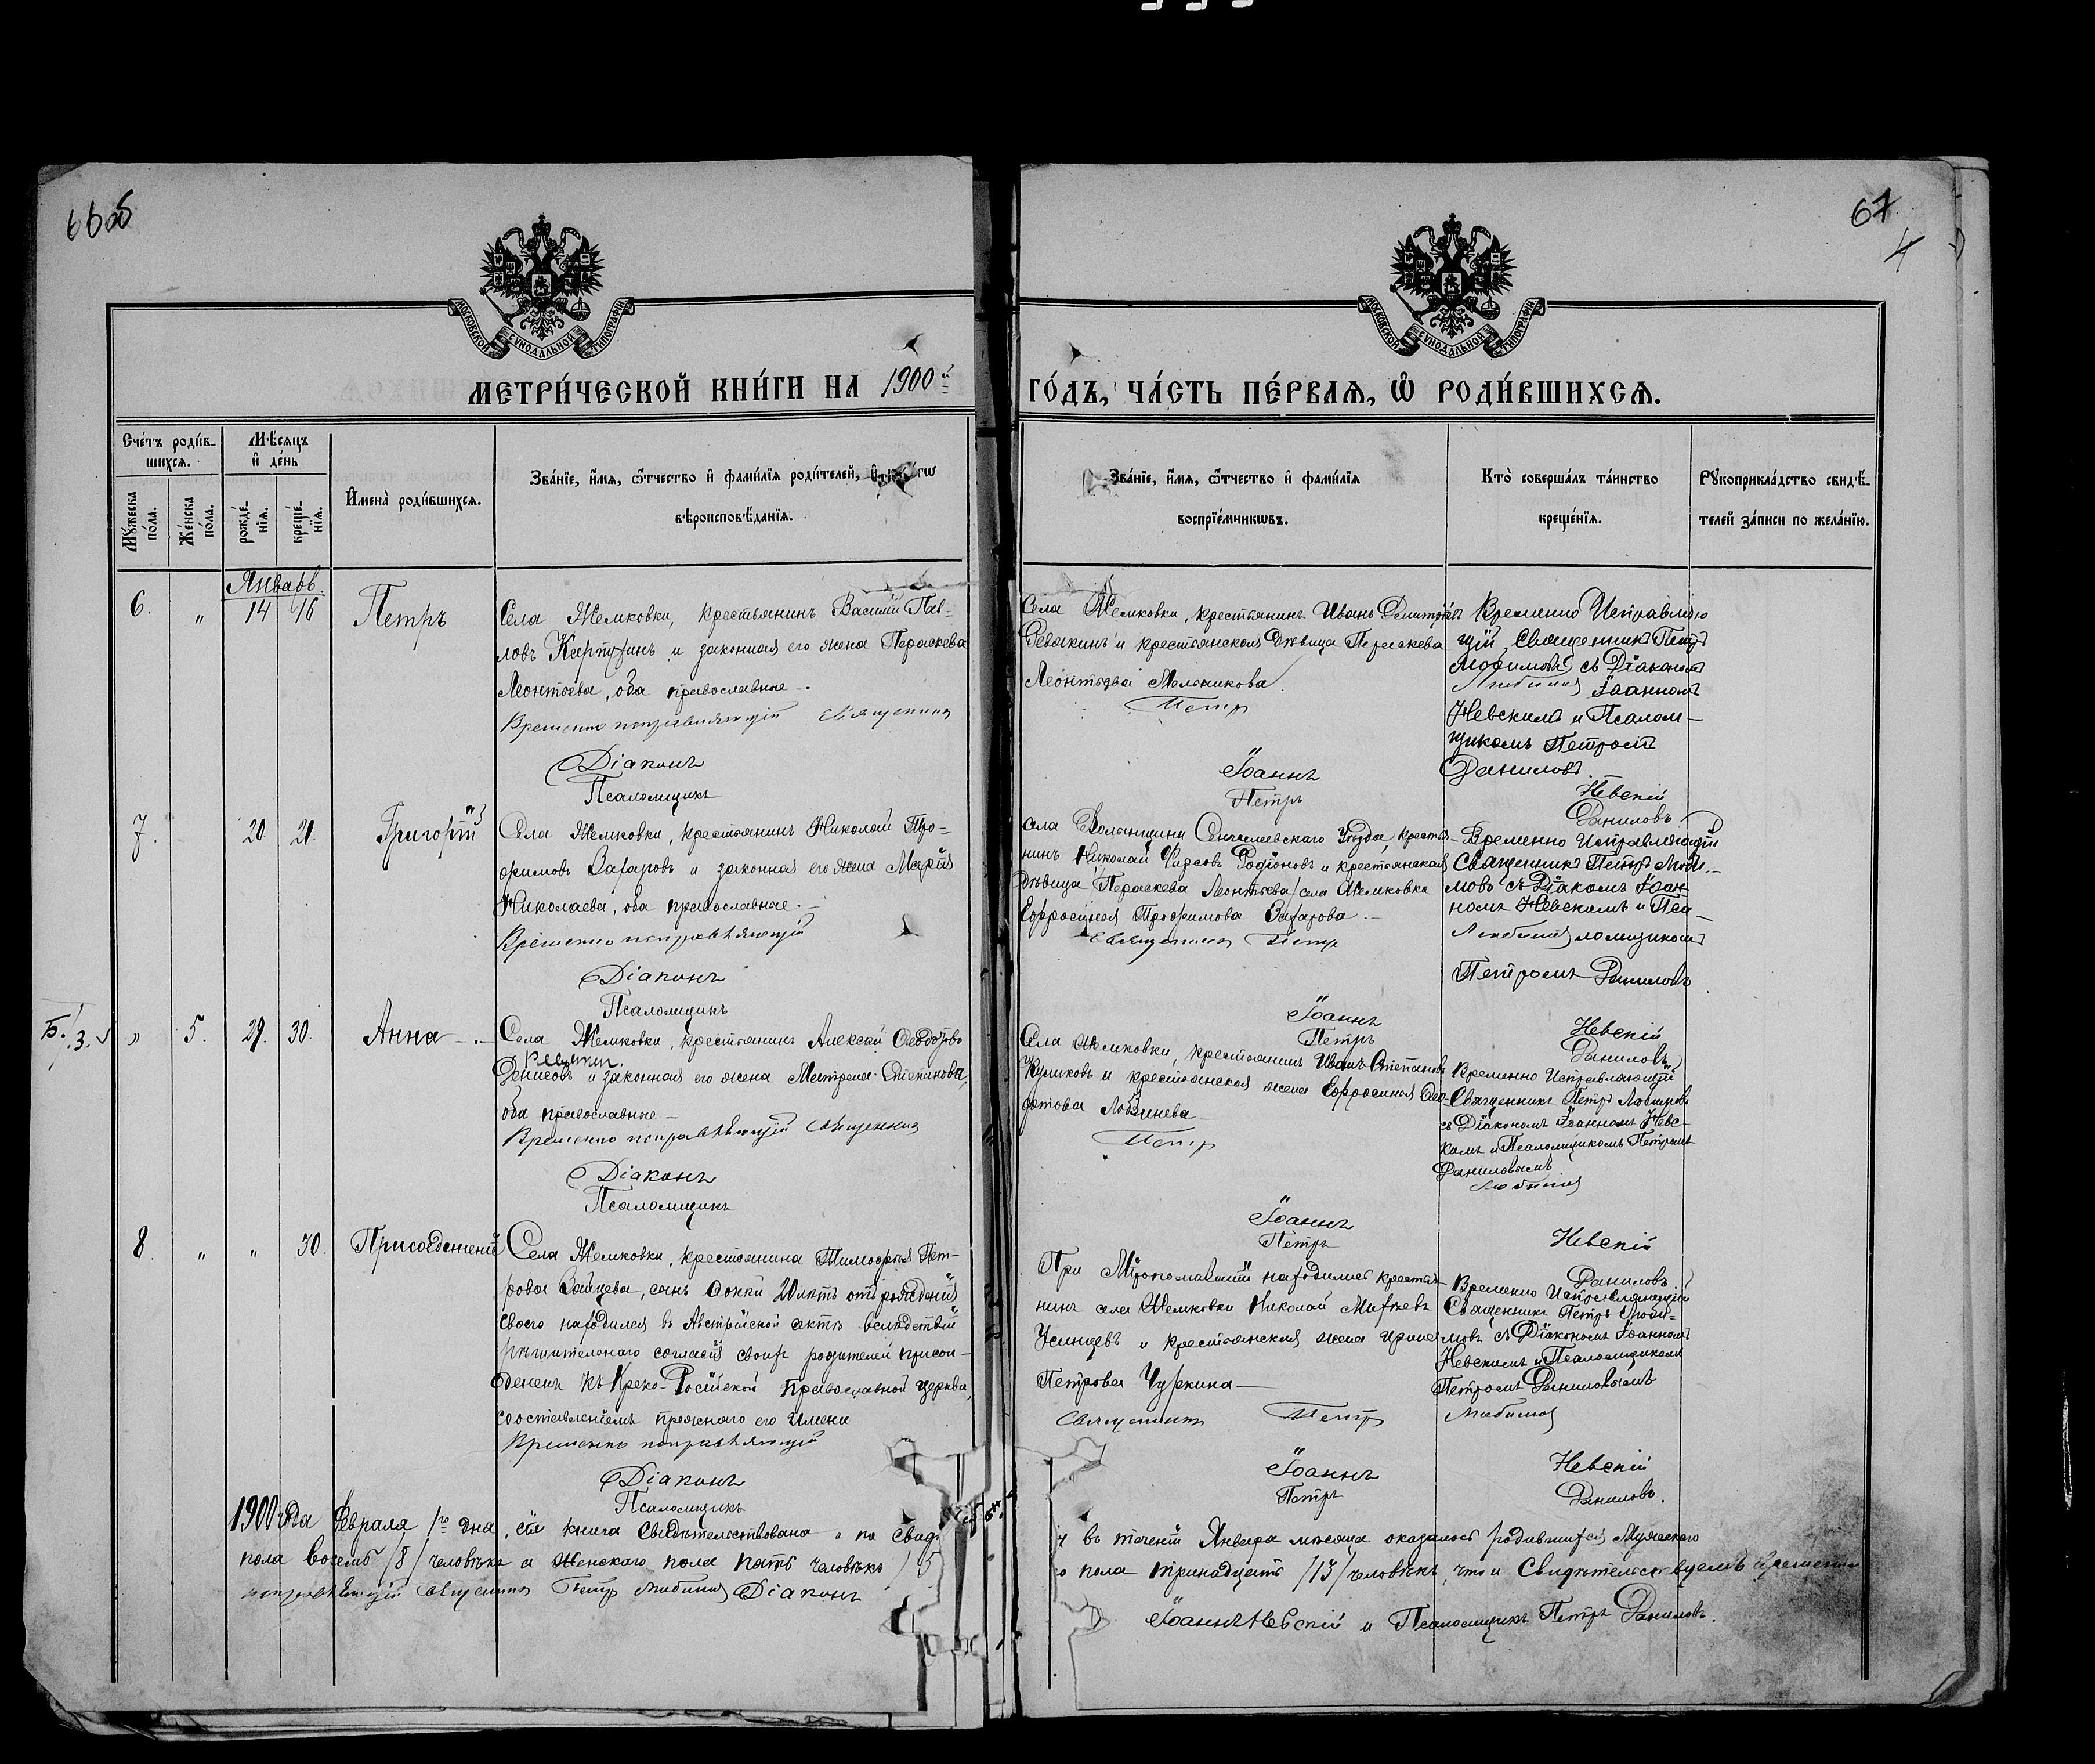 66об
67
4
МОСКОВСКОЙ СУНОДАЛЬНОЙ ТИПОГРАФІИ
МОСКОВСКОЙ СУНОДАЛЬНОЙ ТИПОГРАФІИ
МЕТРИ́ЧЕСКОЙ КНИ́ГИ НА 1900й
ГО́ДЪ, ЧА́СТЬ ПЕ́РВАЯ, Ѡ РОДИ́ВШИХСЯ.
Сче́тъ роди́в-
шихся.
Мѣсяцъ
и де́нь
Му́жеска по́ла.
Же́нска по́ла.
рожде́-нія.
креще́-нія.
Имена̀ роди́вшихся.
Зва́нїе, и́мя, ѻ҆́тчество и фами́лїя роди́телей, и
вѣроисповѣ́данїя.
Зва́нїе, и́мя, ѻ҆́тчество и фами́лїя
воспрїе́мникωвъ.
Кто̀ соверша́лъ та́инство
креще́нїя.
Рꙋкоприкла́дство свидѣ́-
телей за́писи по жела́нїю.
Январь.
6. " 14 16 Петръ
Села Жемковки, крестьянинъ Василій Пав-
ловъ и законная его жена Параскева
Леонтьева, оба православные.
Временно исправляющій Священникъ
Діаконъ
Псаломщикъ
Села Жемковки, крестьянинъ Иванъ Димитріевъ
и крестьянская дѣвица Параскева
Леонтьева
Петръ
Іоаннъ
Петръ
Временно Исправляю
щій Священникъ Петръ
Любимовъ съ Діакономъ
Любимовъ Іоанномъ
Невскимъ и Псалом-
щикомъ Петромъ
Даниловъ.
Невскій
Даниловъ
7. 20 21 Григорій
Села Жемковки, крестьянинъ Николай Тро-
фимовъ Захаровъ и законная его жена Марія
Николаева, оба православные.
Временно исправляющій
Діаконъ
Псаломщикъ
села Уѣзда, крестья-
нинъ Николай Родіоновъ и крестьянская
дѣвица Параскева Леонтьева / села Жемковка
Ефросинія Трофимова Захарова.
Священникъ Петръ
Іоаннъ
Петръ
Временно Исправляющій
Священникъ Петръ Люби-
мовъ съ Діакомъ Іоан-
номъ Невскимъ и Пса-
Любимовъ ломщикомъ
Петромъ Даниловъ
Невскій
Даниловъ
Б. 3. " 5. 29. 30. Анна
Села Жемковки, крестьянинъ Алексѣй Ѳеодоровъ
Денисовъ и законная его жена Матрена Степанова,
оба православные
Временно исправляющій Священникъ
Діаконъ
Псаломщикъ
Села Жемковки, крестьянинъ Иванъ Степановъ
Куликовъ и крестьянская жена Ефросинія Ѳео-
Петръ
Іоаннъ
Петръ
Временно Исправляющій
Священникъ Петръ Любимовъ
съ Діакономъ Іоанномъ Невс-
кимъ и Псаломщикомъ Петромъ
Даниловымъ
Любимовъ
Невскій
Даниловъ.
8. " " 30. Присоединеніе
Села Жемковки, крестьянина Тимофея Пет-
рова Зайцева, сынъ 20 лѣтъ отъ рожденія
своего находился въ Австрійской сектѣ вслѣдствіи
рѣшительнаго согласія своихъ родителей присои-
диненъ къ Греко-Російской православной церкви,
составленіемъ прежняго его имени
Временно исправляющій
Діаконъ
Псаломщикъ
При Мѵропомазаніи находились крестья-
нинъ села Жемковки Николай
и крестьянская жена Ирина
Петрова Чуркина
Священникъ Петръ
Іоаннъ
Петръ
Временно Исправляющій
Священникъ Петръ Люби-
мовъ съ Діакономъ Іоанномъ
Невскимъ и Псаломщикомъ
Петромъ Даниловымъ
Любимовъ
Невскій
Даниловъ.
1900 года Февраля 1го дня, сія книга Свидѣтельствована и по
въ теченіи Января мѣсяца оказалось родившихся Мужескаго
пола восемь /8/ человѣкъ а женскаго пола пять человѣкъ /5
о пола тринадцать /13/ человѣкъ, что и Свидѣтельствуемъ временно
исправляющій священникъ Петръ Любимовъ Діаконъ
Іоаннъ Невскій и Псаломщикъ Петръ Даниловъ.